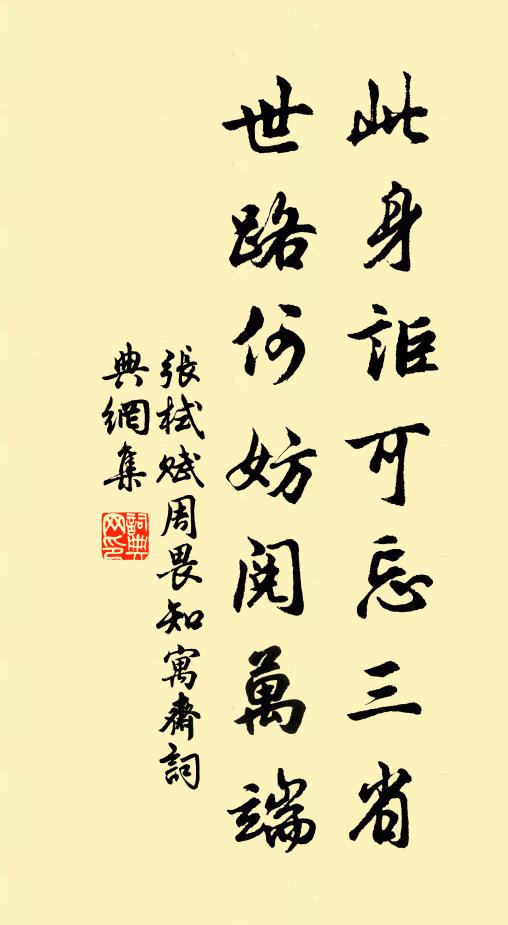 此身詎可忘三省
世路何妨閱萬端
張栻賦周畏知寓齋詞
典網集
詞典
网印